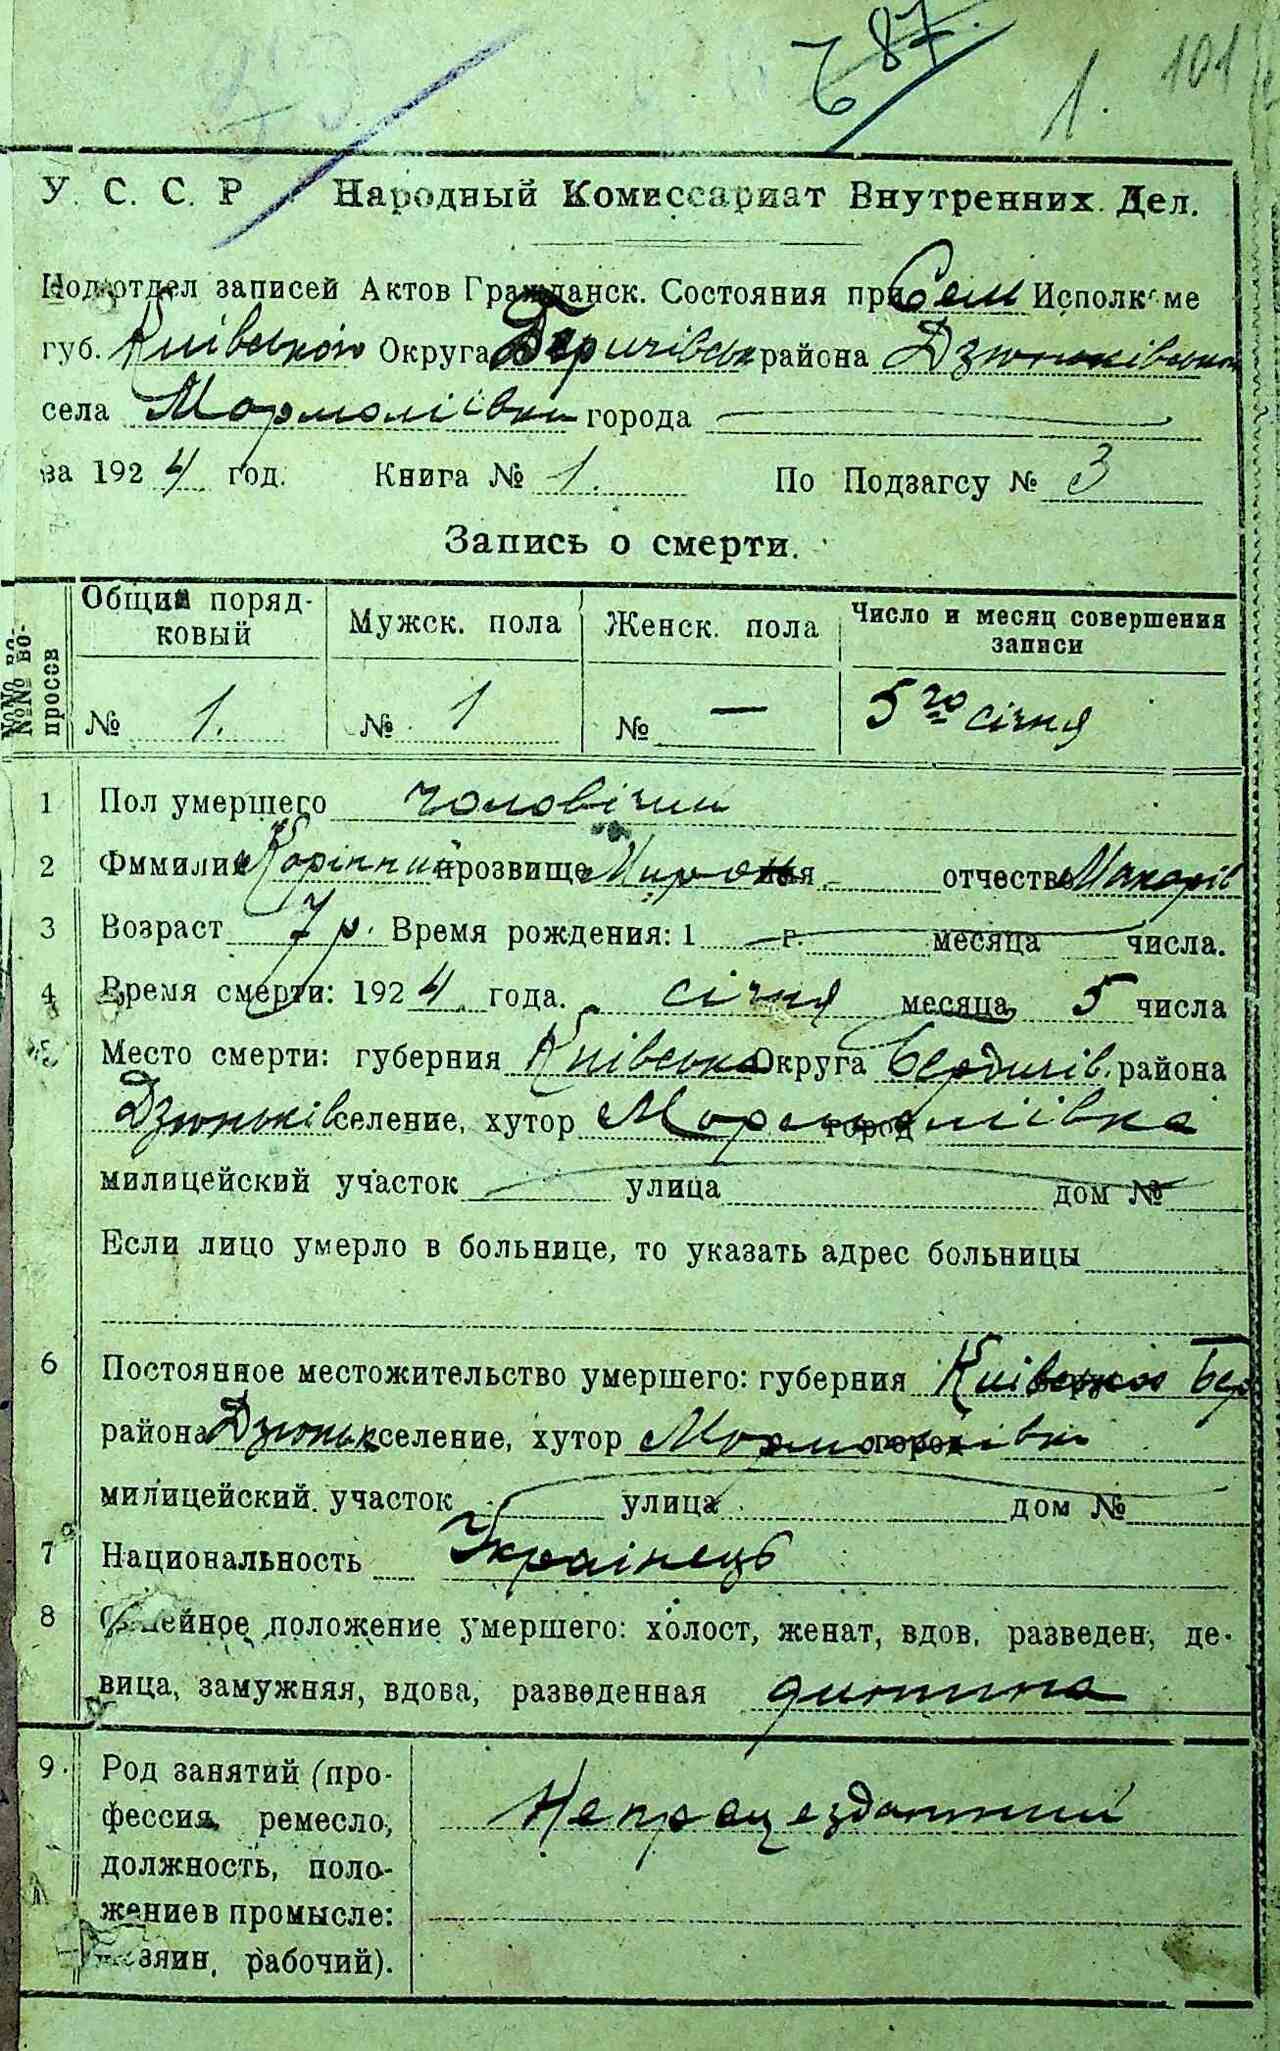 87
1. 101
У. С. С. Р Народный Комиссариат Внутренних Дел.
Подотдел записей Актов Гражданск. Состояния при Сель Исполкоме
губ. Київської Округа района Дзюньківськ
села Мормоліївки города
за 1924 год. Книга № 1. По Подзагсу № 3
Запись о смерти.
№№ вопросов
Общий порядковый Мужск. пола Женск. пола Число и месяц совершения записи
№ 1. № 1 № — 5го січня
1 Пол умершего чоловічий
2 Фммилия Корінний прозвище Мирон отчество Макарів
3 Возраст 7 р. Время рождения: 1 г. месяца числа.
4 Время смерти: 1924 года. січня месяца 5 числа
5 Место смерти: губерния Київська Округа Бердичів. района
Дзюньків селение, хутор Мормоліївка город
милицейский участок улица дом №
Если лицо умерло в больнице, то указать адрес больницы
6 Постоянное местожительство умершего: губерния Київської Бер
района Дзюньк селение, хутор Мормоліївки город
милицейский участок улица дом №
7 Национальность Українець
8 Семейное положение умершего: холост, женат, вдов, разведен, де-
вица, замужняя, вдова, разведенная дитина
9. Род занятий (про-
фессия, ремесло, Непрацездатний
должность, поло-
жение в промысле:
хозяин, рабочий).